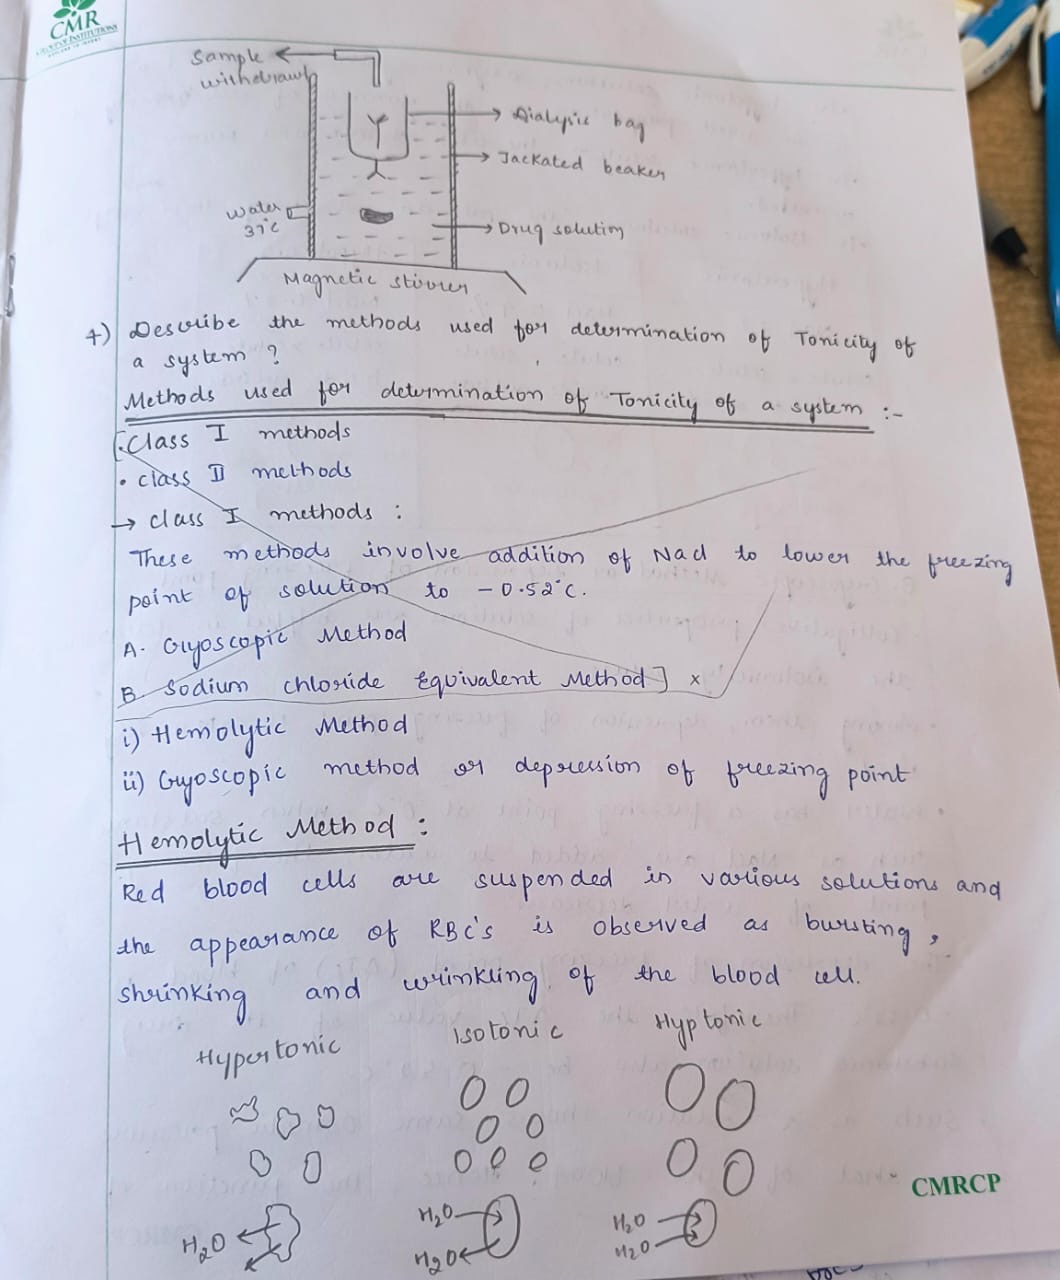 CMR
GROUP OF INSTITUTIONS
Sample
withdrawl
Dialysic bag
Jackated beaker
Water
37°C
Drug solution
Magnetic stirrer
4) Describe the methods used for determination of Tonicity of
a system ?
Methods used for determination of Tonicity of a system :-
[• Class I methods
• class II methods
→ class I methods :
These methods involve addition of Nacl to lower the freezing
point of solution to - 0.52°C.
A. Cryoscopic Method
B. Sodium chloride Equivalent Method] x
i) Hemolytic Method
ii) Cryoscopic method or depression of freezing point
Hemolytic Method :
Red blood cells are suspended in various solutions and
the appearance of RBC's is observed as bursting,
shrinking and wrinkling of the blood cell.
Hypertonic Isotonic Hyptonic
H₂O H₂O H₂O
H₂O H₂O
CMRCP